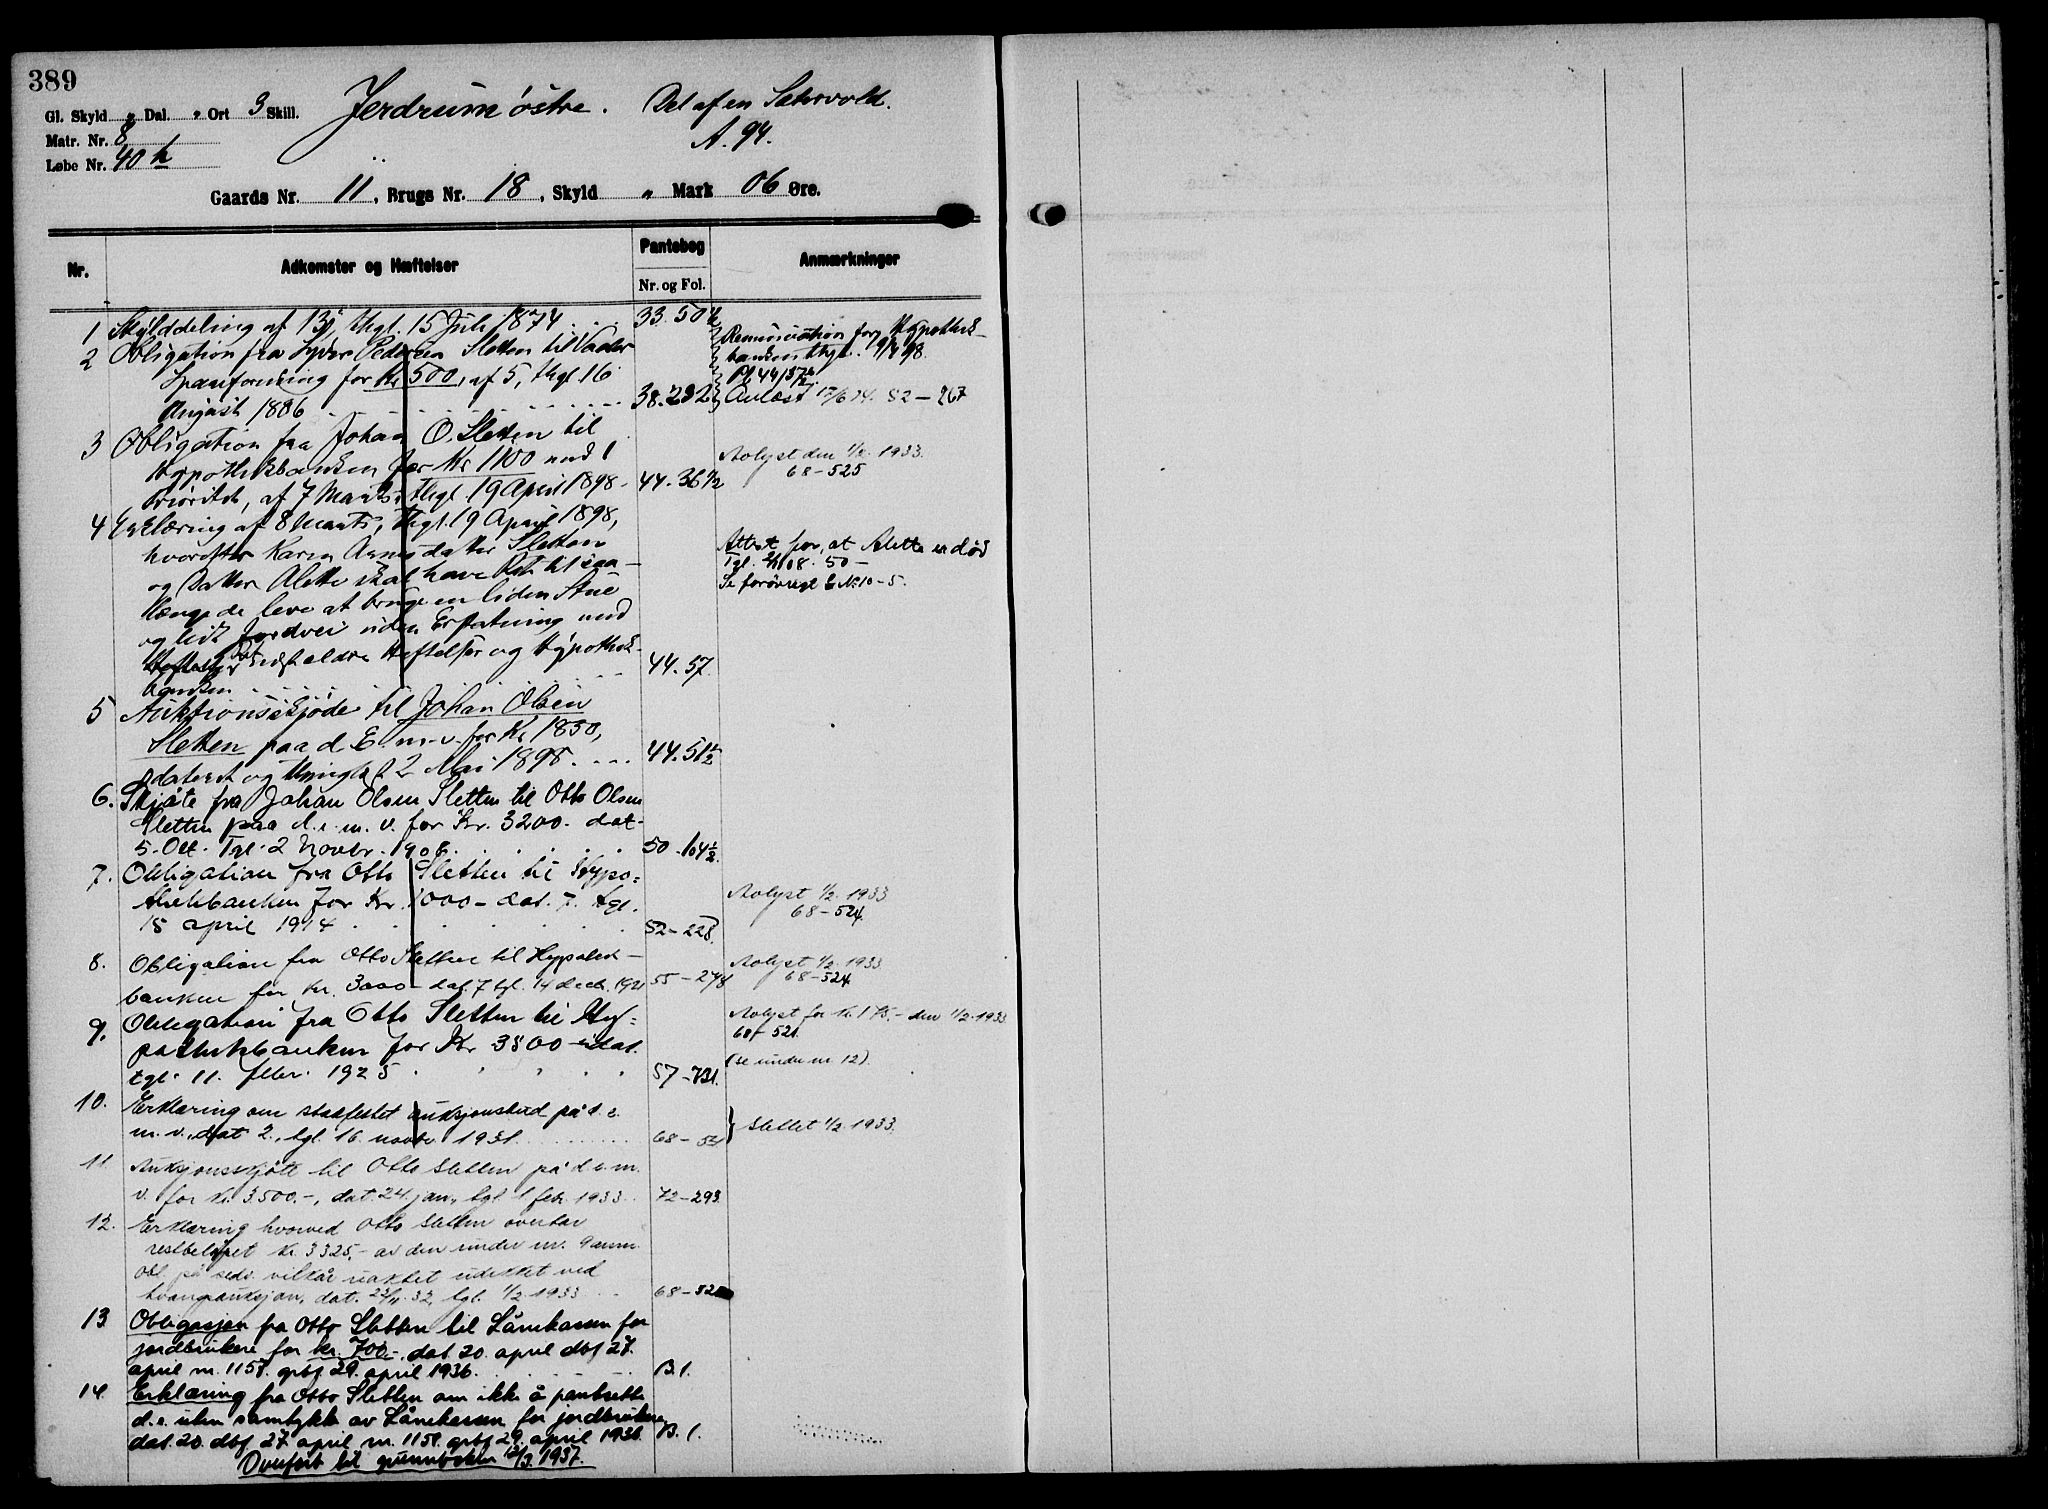 389
Gl. Skyld „ Dal. „ Ort 3 Skill.
Jerdrum østre. Del af en
A. 94.
Matr. Nr. 8
Løbe Nr. 40 h
Gaards Nr. 11, Brugs Nr. 18, Skyld „ Mark 06 Øre.
Nr.
Adkomster og Hæftelser
Pantebog
Nr. og Fol.
Anmærkninger
1 Skylddeling af 13, thgl. 15 Juli 1874 33.50
2 Obligation fra Syver Pedersen Sletten til
Spareforening for Kr 500, af 5, thgl 16
August 1886 38.232
Renunciation for Hypothek-
banken thgl. 19/4 98.
Avlæst 17/6 14. 52–267
3 Obligation fra Johan O. Sletten til
Hypothekbanken for Kr 1100 med 1
Prioritet, af 7 Marts, thgl. 19 April 1898 44.36½
Avlyst den 1/2 1933.
68–525
4 Erklæring af 8 Marts, thgl. 19 April 1898,
hvorefter Karen datter Sletten
og Datter Alette skal have Ret til saa-
længe de leve at bruge en liden Stue
og lidt Jordvei uden Erstatning med
ældre Heftelser og Hypothek-
banken 44.57.
Attest for, at Alette er død
Tgl. 08. 50–
Se forøvrigt No 10–5.
5 Auktionsskjøde til Johan Olsen
Sletten paa d. E. m. v. for Kr 1850,
dateret og thinglæst 2 Mai 1898. 44.51½
6. Skjøte fra Johan Olsen Sletten til Otto Olsen
Sletten paa d. e. m. v. for Kr. 3200. dat.
5. Okt. Tgl. 2 Novbr. 1908. 50.104½.
7. Obligation fra Otto Sletten til Hypo=
thekbanken for Kr. 1000– dat. 7. tgl.
15 april 1914 52–228.
Avlyst 1/2 1933
68–524.
8. Obligation fra Otto Sletten til Hypotek–
banken for kr. 3000– dat. 7 tgl. 14 decb. 1921 55–278
Avlyst 1/2 1933.
68–524.
9. Obligation fra Otto Sletten til Hy=
pothekbanken for Kr 3500– dat.
tgl. 11. febr. 1925 57–731.
Avlyst for Kr 175,– den 1/2 1933
68–521
(se under nr. 12).
10. Erklæring om stadfestet auksjonsbud på d. e.
m. v., dat 2., tgl. 16. novbr. 1931. 68–
Slettet 1/2 1933.
11. Auksjonsskjøte til Otto Sletten på d. e. m.
v. for Kr. 3500.–, dat. 24. jan., tgl. 1 febr. 1933 72–293.
12. Erklæring hvorved Otto Sletten overtar
restbeløpet kr. 3325,– av den under nr. 9 anm.
obl. på vilkår uaktet udekket ved
tvangsauksjon, dat. 32, tgl. 1/2 1933 68–
13. Obligasjon fra Otto Sletten til Lånekassen for
jordbrukere for kr. 700.–, dat. 20. april dbf 27.
april nr. 1157. grbf 29. april 1936. B.1.
14. Erklæring fra Otto Sletten om ikke å pantsette
d. e. uten samtykke av Lånekassen for jordbrukere
dat. 20. dbf. 27 april nr. 1158. grbf 29. april 1936. B.1.
Overført til grunnboken 12/3. 1937.